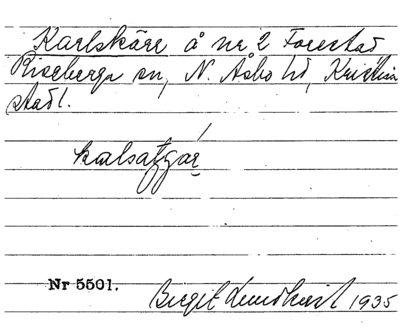 Karlskärr å nr 2 Forestad
Riseberga sn, N. Åsbo hd, Kristian
stad l.
Nr 5501.
Birgit Lundkvist 1935